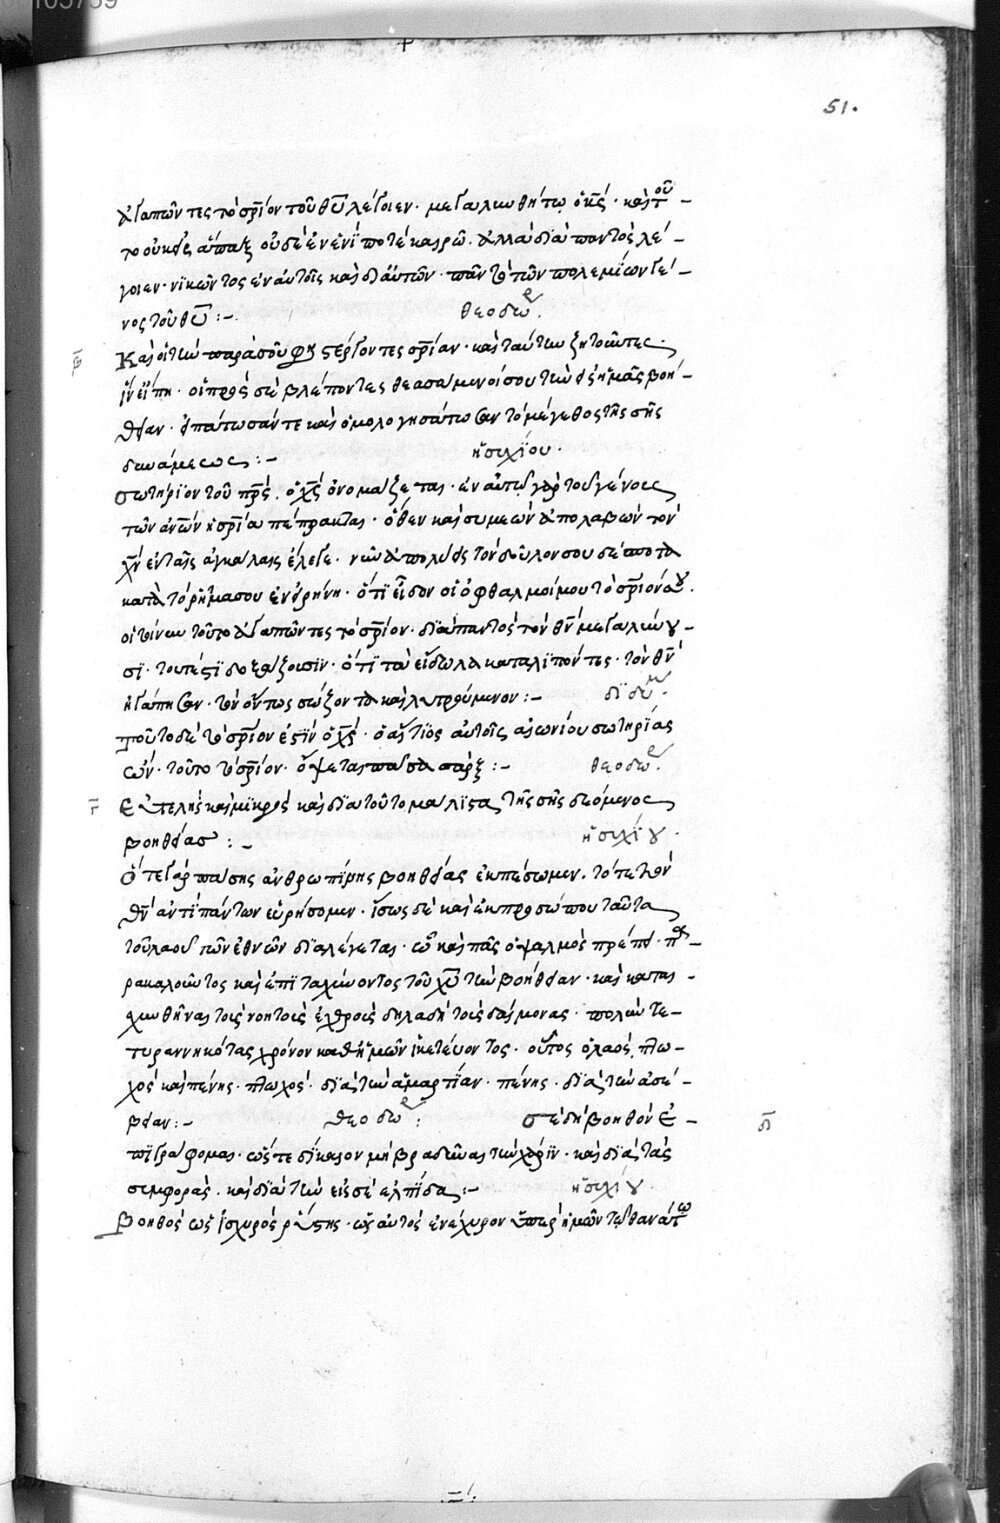 51.
ἀγαπῶντες τὸ σρ̅ιόν τοῦ θῦ λέγοιεν· μεγαλυνθήτω ὁ κς̅· καὶ τοῦ-
το οὐχ ἅπαξ οὐδὲ ἐν ἑνί ποτὲ καιρῷ· ἀλλὰ διαπαντὸς λέ-
γοιεν· νικῶντος ἐν αὐτοῖς καὶ δι' αὐτῶν· πᾶν τὸ τῶν πολεμίων γέ-
νος τοῦ θῦ :- θεοδωρ
β̅ Καὶ οἱ τὴν παρὰ σοῦ στέργοντες σρ̅ίαν· καὶ ταύτην ζητοῦντες·
ἵν' εἴπῃ· οἱ πρὸς σὲ βλέποντες θεασάμενοί σου τὴν εἰς ἡμᾶς βοή-
θειαν· εἰπάτωσάν τε καὶ ὁμολογησάτωσαν τὸ μέγεθος τῆς σῆς
δυνάμεως :- ἡσυχίου·
σωτήριον τοῦ πρς̅· ὁ χς̅ ὀνομάζεται· ἐν αὐτῷ γὰρ τοῦ γένους
τῶν ἀνῶν ἡ σρ̅ία πέπρακται· ὅθεν καὶ συμεὼν ἀπολαβὼν τὸν
χν̅ ἐν ταῖς ἀγκάλαις ἔλεγε· νῦν ἀπολύεις τὸν δοῦλον σου δέσποτα
κατὰ τὸ ῥῆμα σου ἐν εἰρήνῃ· ὅτι εἶδον οἱ ὀφθαλμοί μου τὸ σρ̅ιόν σου·
οἱ τοίνυν τοῦτο ἀγαπῶντες τὸ σρ̅ιον· διαπαντὸς τὸν θν̅ μεγαλύνου-
σι· τουτέστι δοξάζουσιν· ὅτι τὰ εἴδωλα καταλιπόντες· τὸν θν̅
ἠγάπησαν· τὸν ὄντως σώζοντα καὶ λυτρούμενον :- διδύμ·
τοῦτο δὲ τὸ σρ̅ιον ἐστὶν ὁ χς̅· ὁ αἴτιος αὐτοῖς αἰωνίου σωτηρίας
ὤν· τοῦτο τὸ σρ̅ιον· ὄψεται πᾶσα σάρξ :- θεοδωρ·
γ̅ Εὐτελὴς καὶ μικρὸς καὶ διατοῦτο μάλιστα τῆς σῆς δεόμενος
βοηθείας :- ἡσυχίου·
Ὅτε γὰρ πάσης ἀνθρωπίνης βοηθείας ἐκπέσωμεν· τότε τὸν
θν̅ ἀντὶ πάντων εὑρήσομεν· ἴσως δὲ καὶ ἐκ προσώπου ταῦτα
τοῦ λαοῦ τῶν ἐθνῶν διαλέγεται· ᾧ καὶ πᾶς ὁ ψαλμὸς πρέπει· πα-
ρακαλοῦντος καὶ ἐπιταχύνοντος τοῦ χῦ τὴν βοήθειαν· καὶ καται-
σχυνθῆναι τοὺς νοητοὺς ἐχθροὺς δηλαδὴ τοὺς δαίμονας· πολὺν τε-
τυραννηκότας χρόνον καθ' ἡμῶν ἱκετεύοντος· οὗτος ὁ λαός, πτω-
χὸς καὶ πένης· πτωχὸς· διὰ τὴν ἁμαρτίαν· πένης· διὰ τὴν ἀσέ-
βειαν :- θεοδωρ : σὲ δὴ βοηθὸν ἐ- δ̅
πιγράφομαι· ὥστε δίκαιον μὴ βραδῦναι τὴν χάριν· καὶ διὰ τὰς
συμφορὰς· καὶ διὰ τὴν εἰς σὲ ἐλπίδα :- ἡσυχίου·
Βοηθὸς ὡς ἰσχυρὸς ῥύστης· ὡς αὐτὸς ἐνέχυρον ὑπὲρ ἡμῶν τῷ θανάτω